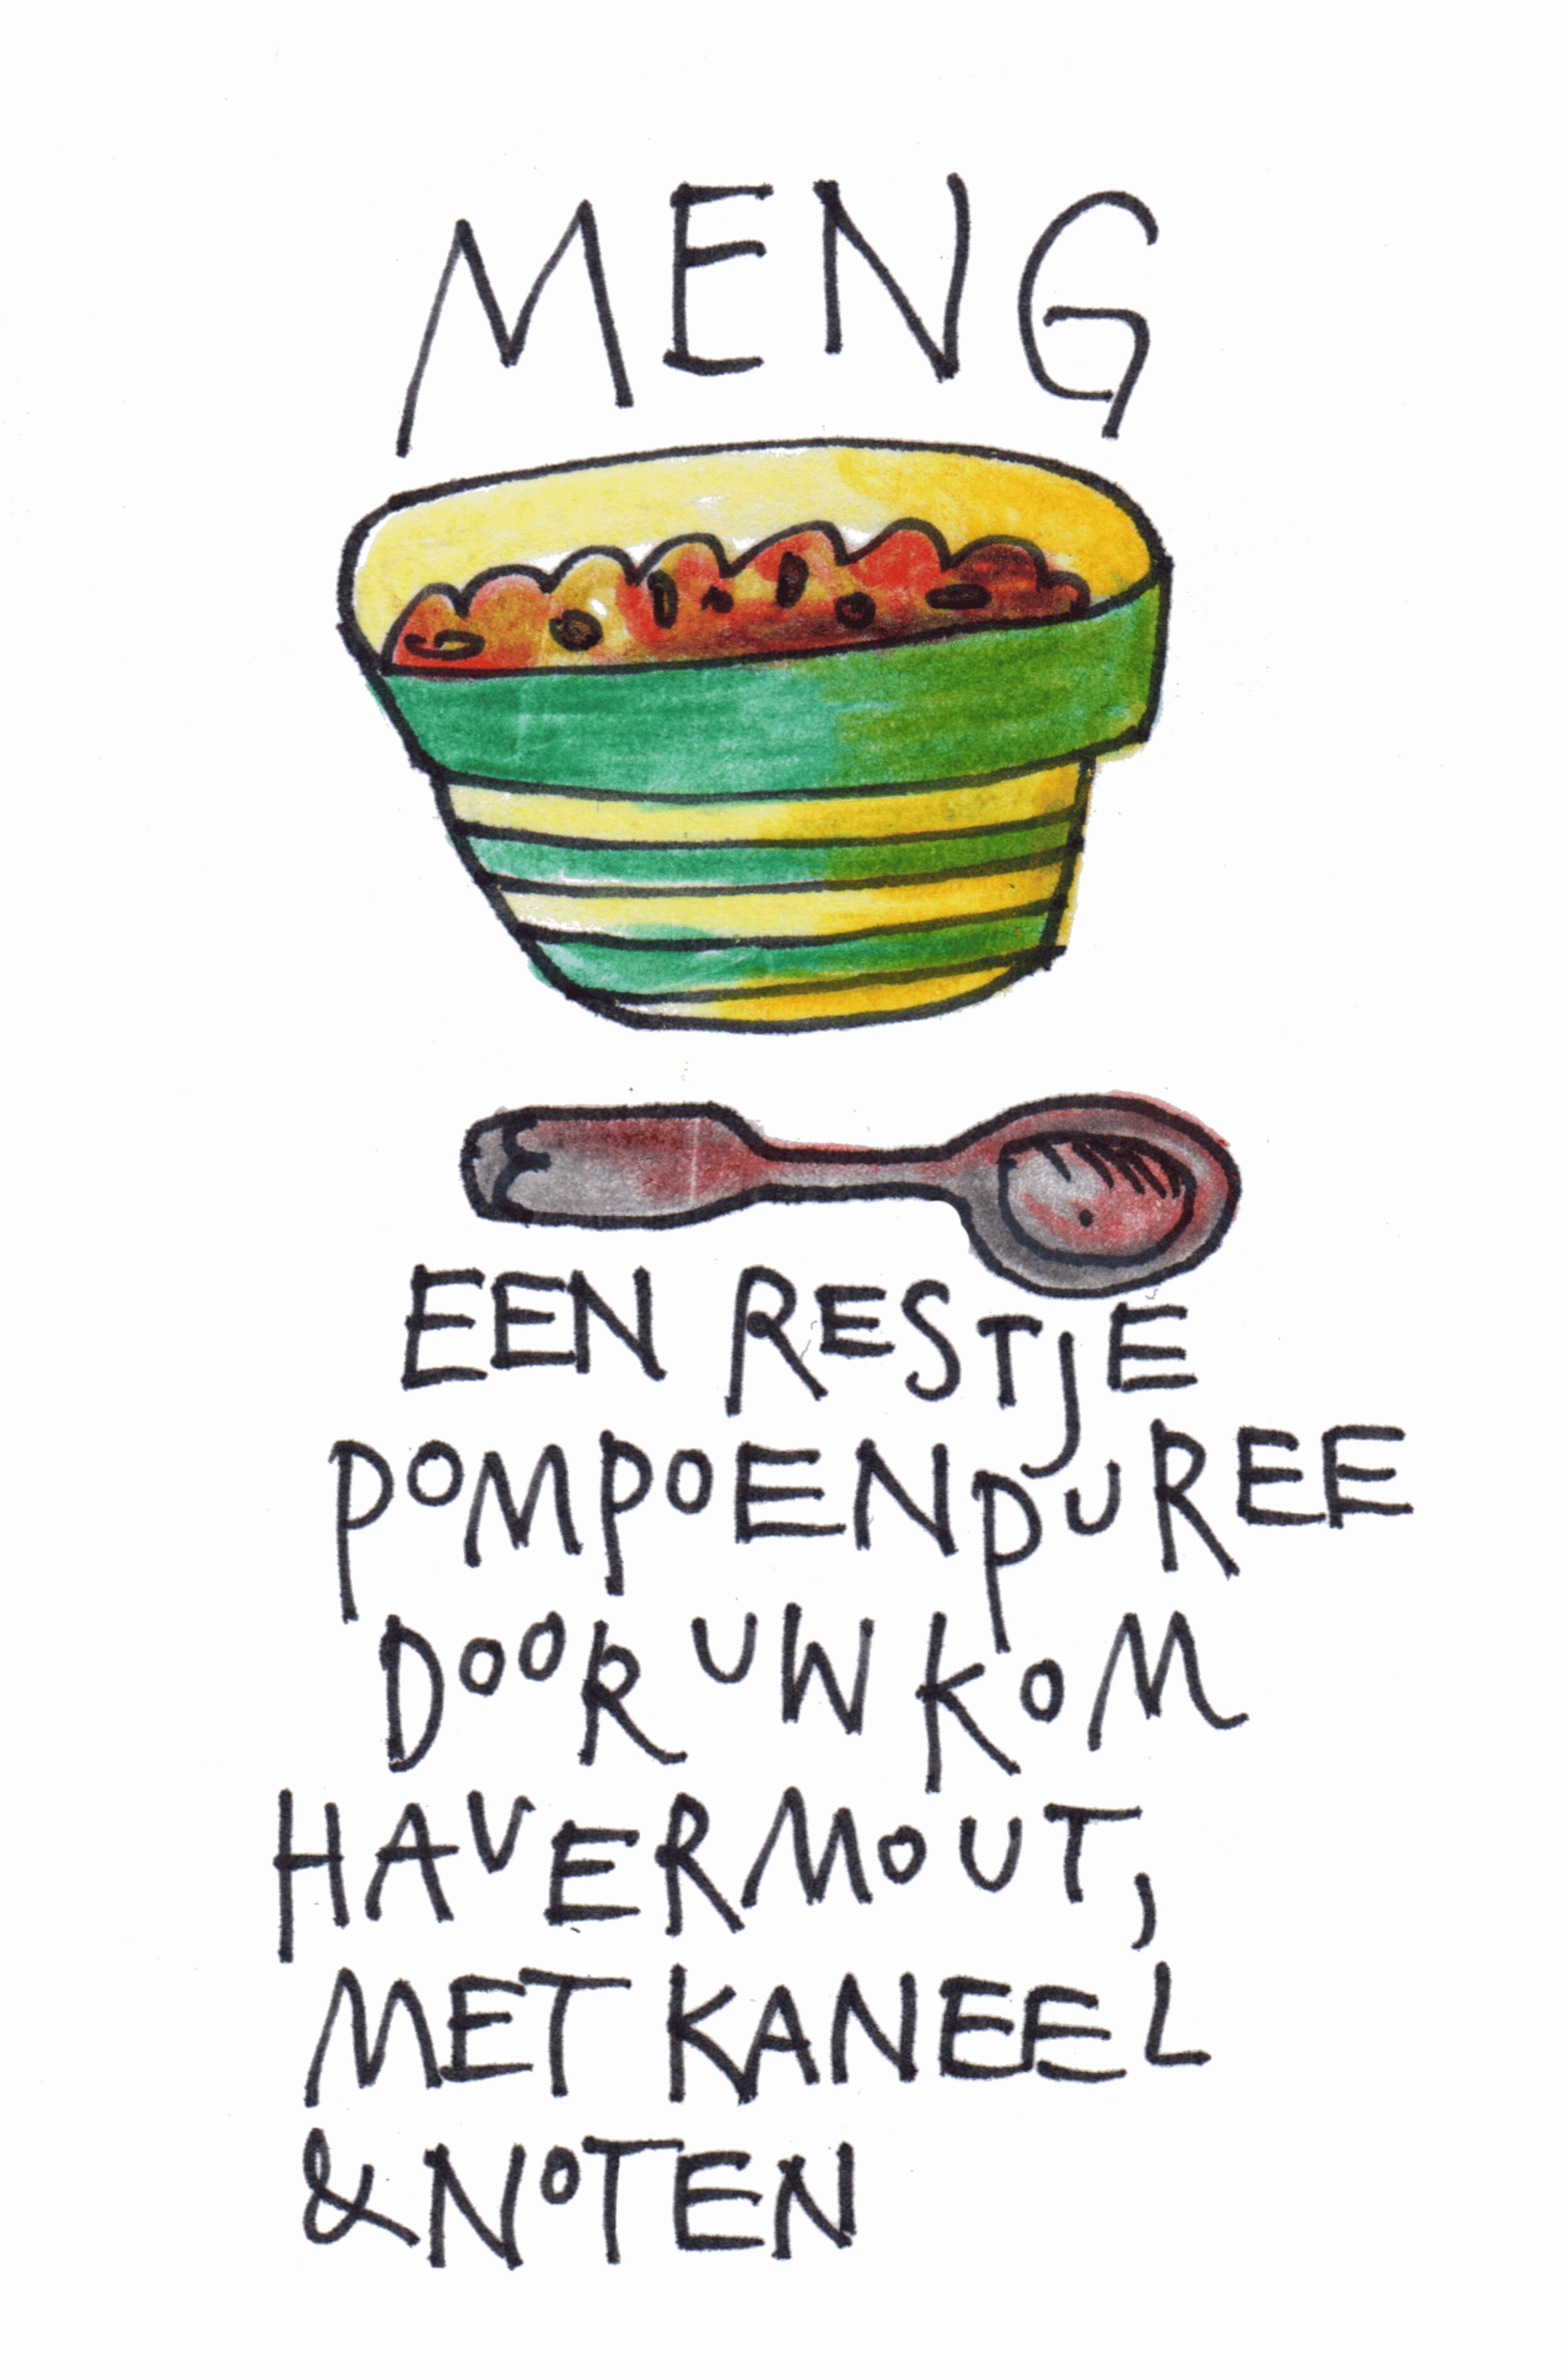 MENG
EEN RESTJE
POMPOENPUREE
DOOR UW KOM
HAVERMOUT,
MET KANEEL
& NOTEN